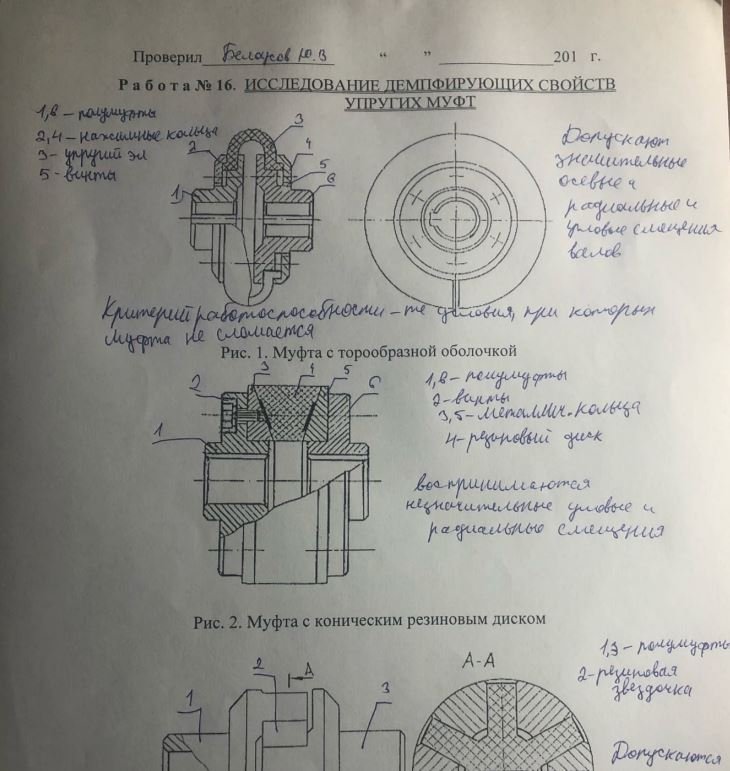 Проверил Беляков Ю.В " " 201 г.
Работа № 16. ИССЛЕДОВАНИЕ ДЕМПФИРУЮЩИХ СВОЙСТВ
УПРУГИХ МУФТ
1,6 – полумуфты
2,4 – нажимные кольца
3 – упругий эл
5 – винты
1
2
3
4
5
6
Допускают
значительные
осевые и
радиальные и
угловые смещения
валов
Критерий работоспособности – те условия, при которых
муфта не сломается
Рис. 1. Муфта с торообразной оболочкой
1
2
3
4
5
6
1,6 – полумуфты
2 – винты
3,5 – металлич. кольца
4 – резиновый диск
воспринимаются
незначительные угловые и
радиальные смещения
Рис. 2. Муфта с коническим резиновым диском
1
2
А
3
А-А
1,3 – полумуфты
2 – резиновая
звездочка
Допускаются